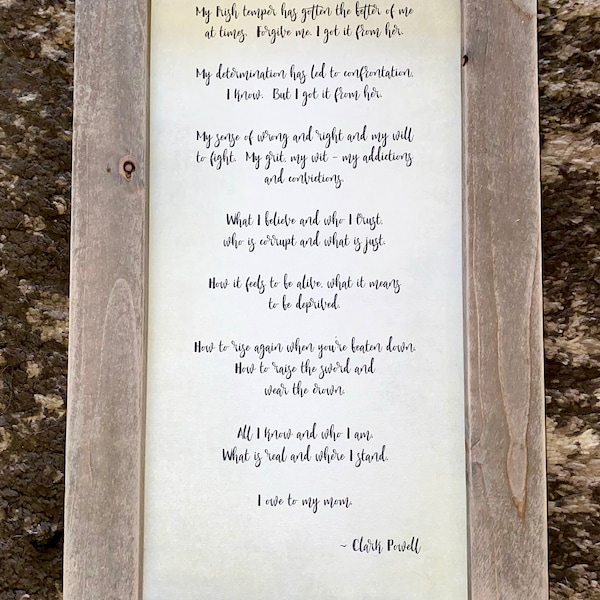 My Irish temper has gotten the better of me
at times. Forgive me, I got it from her.
My determination has led to confrontation,
I know. But I got it from her.
My sense of wrong and right and my will
to fight. My grit, my wit - my addictions
and convictions.
What I believe and who I trust,
who is corrupt and what is just.
How it feels to be alive, what it means
to be deprived.
How to rise again when you're beaten down.
How to raise the sword and
wear the crown.
All I know and who I am.
What is real and where I stand.
I owe to my mom.
~ Clark Powell